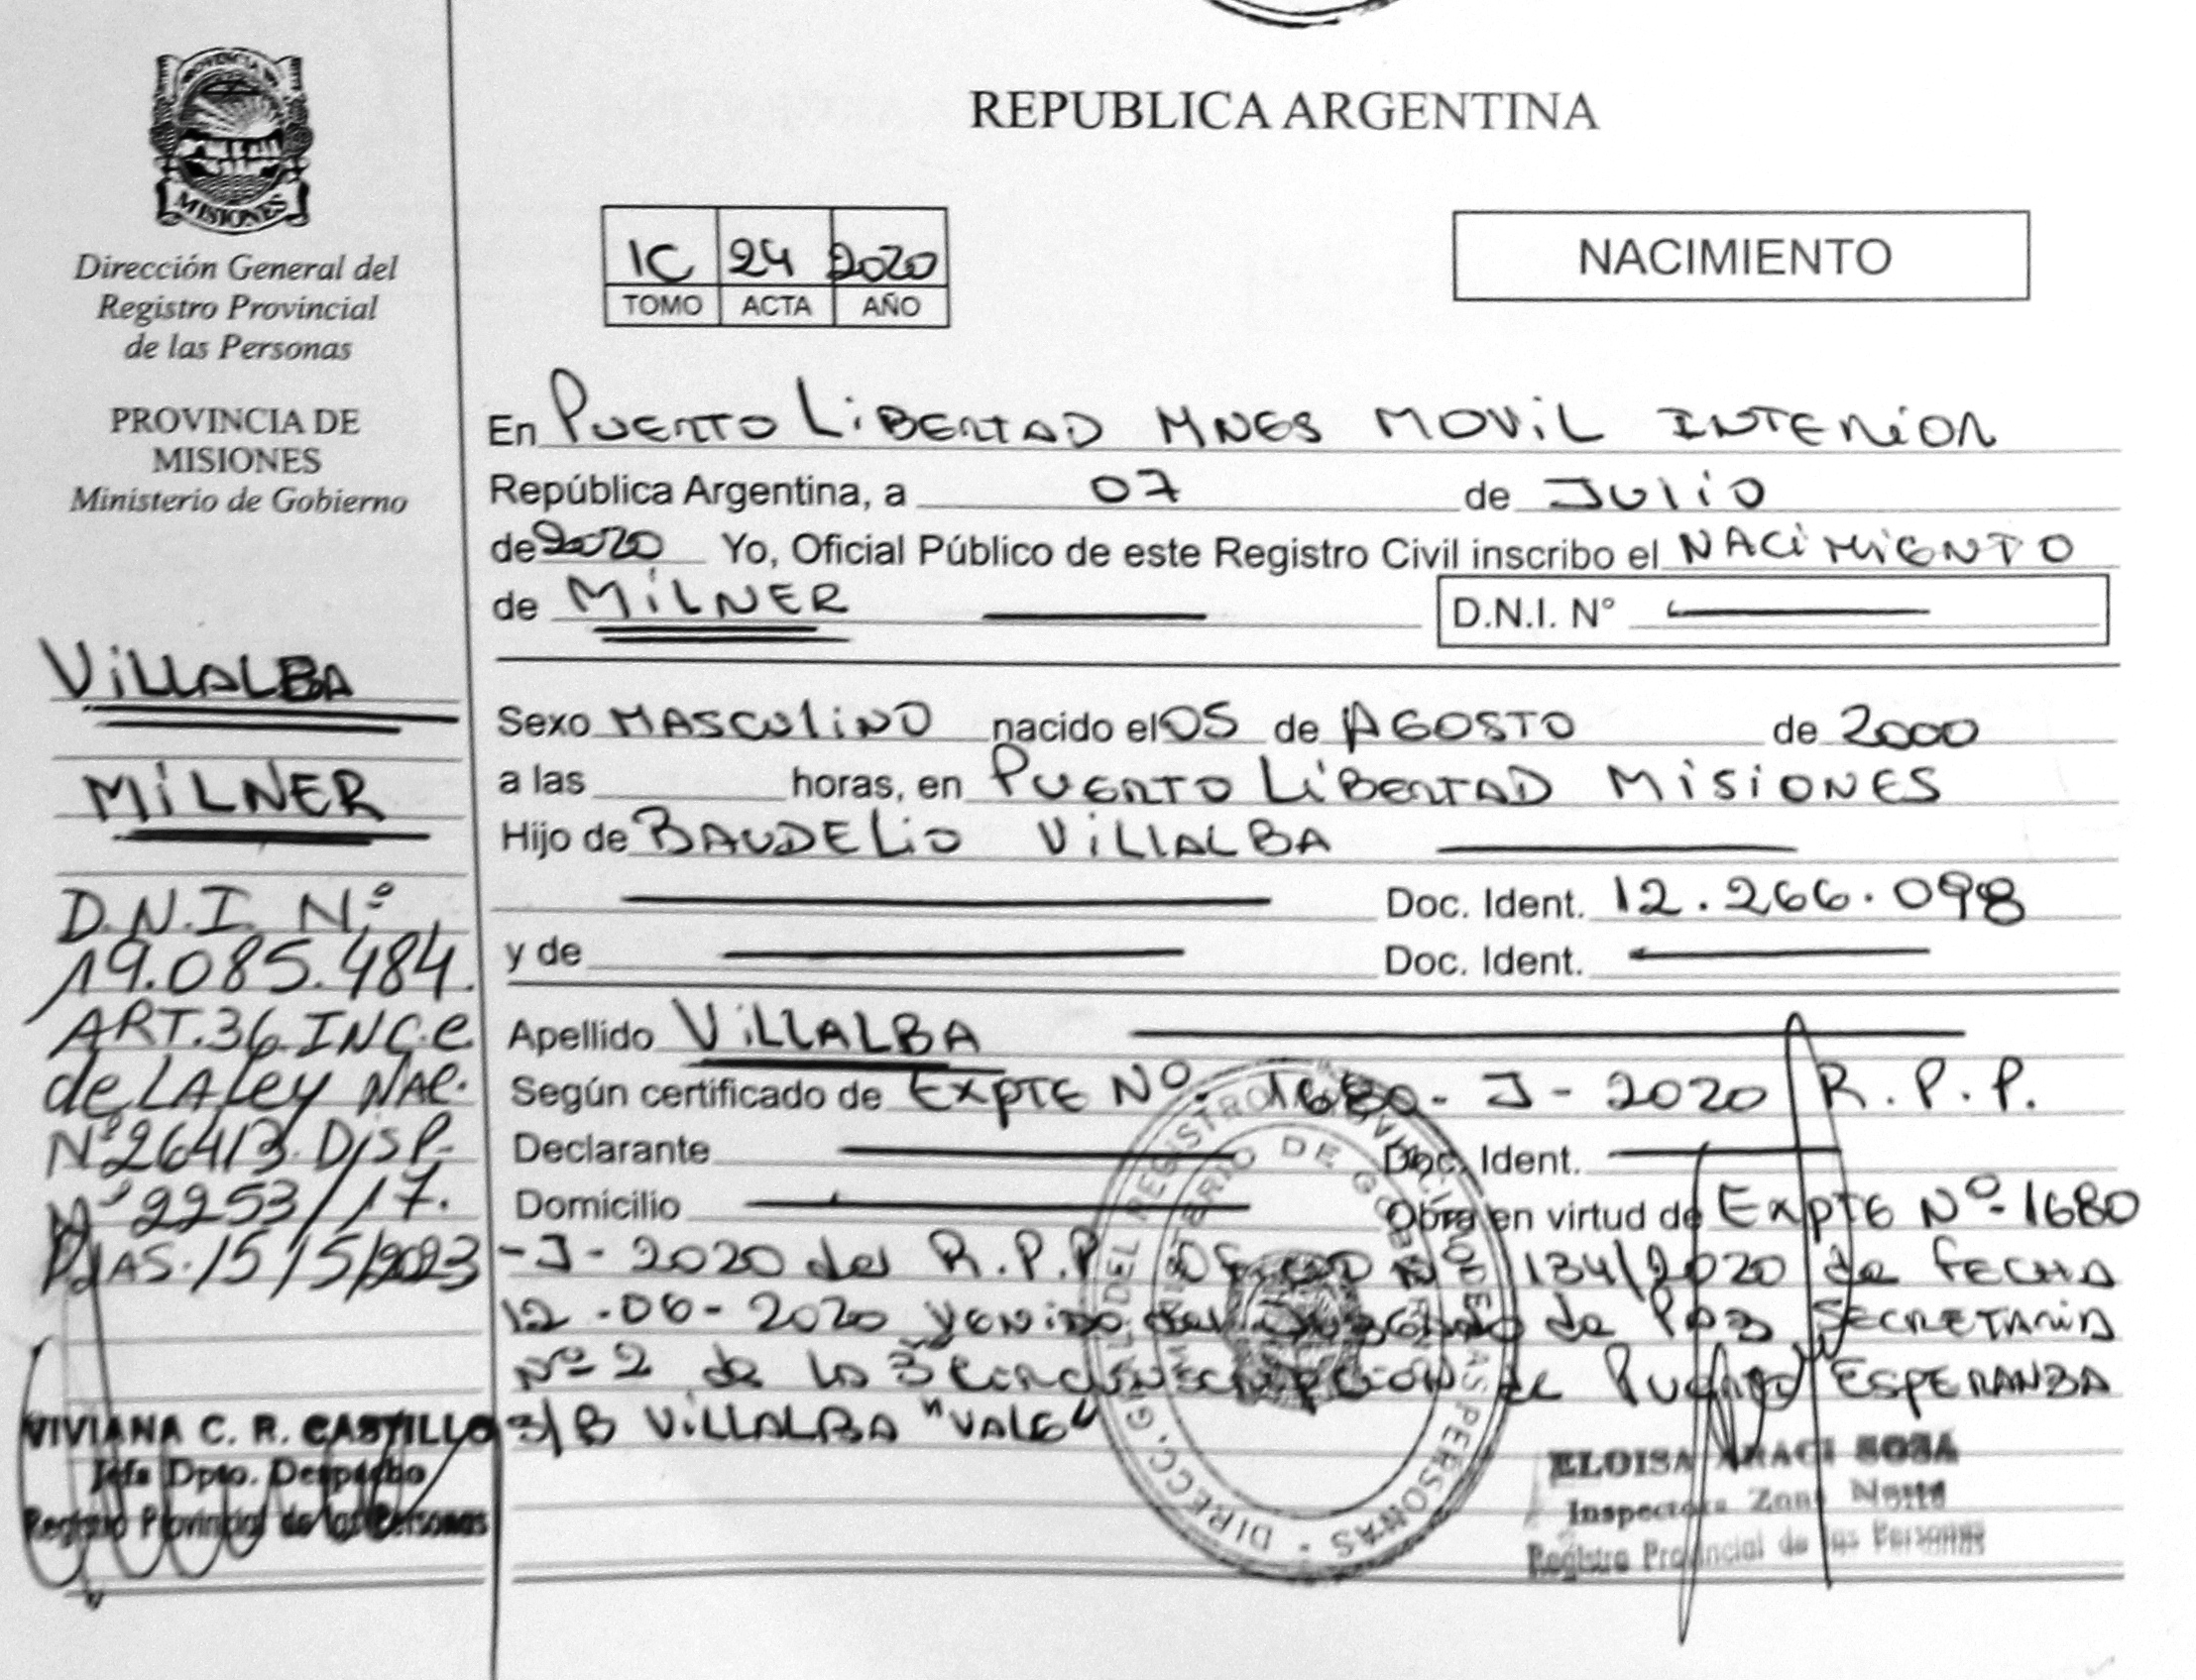 PROVINCIA DE
MISIONES
Dirección General del
Registro Provincial
de las Personas
PROVINCIA DE
MISIONES
Ministerio de Gobierno
VILLALBA
MILNER
D.N.I. Nº
19.085.484.
ART.36 INC.e
de LA Ley NAC.
Nº26413. DISP.
Nº2253/17.
Pdas. 15/5/2023
VIVIANA C. R. CASTILLO
Jefa Dpto. Despacho
Registro Provincial de las Personas
REPUBLICA ARGENTINA
IC 24 2020
TOMO ACTA AÑO
NACIMIENTO
En PUERTO LIBERTAD MNES MOVIL INTERIOR
República Argentina, a 07 de JULIO
de 2020 Yo, Oficial Público de este Registro Civil inscribo el NACIMIENTO
de MILNER D.N.I. Nº
Sexo MASCULINO nacido el 05 de AGOSTO de 2000
a las horas, en PUERTO LIBERTAD MISIONES
Hijo de BAUDELIO VILLALBA
Doc. Ident. 12.266.098
y de Doc. Ident.
Apellido VILLALBA
Según certificado de EXPTE Nº. 1680- J- 2020 R.P.P.
Declarante Doc. Ident.
Domicilio Obra en virtud de EXPTE Nº-1680
-J-2020 del R.P.P. OFICIO Nº 134/2020 de FECHA
12-06-2020 VENIDO del JUZGADO de PAZ SECRETARIA
Nº-2 de la 3ª CIRCUNSCRIPCION de PUERTO ESPERANZA
S/B VILLALBA "VALE"
DIRECC. GRAL DEL REGISTRO PROVINCIAL DE LAS PERSONAS
MINISTERIO DE GOBIERNO
ELOISA ARACI SOSA
Inspectora Zona Norte
Registro Provincial de las Personas